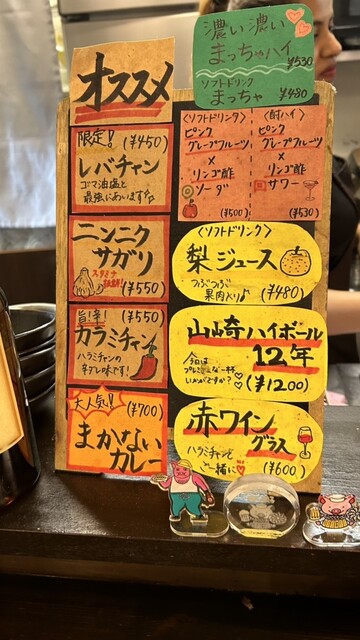 オススメ
濃い濃い
まっちゃハイ
¥530
ソフトドリンク
まっちゃ ¥480
限定! (¥450)
レバチャン
ゴマ油塩と
最強にあいます
ニンニク
サガリ
スタミナ
(¥550)
旨辛! (¥550)
カラミチャン
ハラミチャンの
辛アレ味です!
大人気!! (¥700)
まかない
カレー
〈ソフトドリンク〉
ピンク
グレープフルーツ
×
リンゴ酢
ソーダ
(¥500)
〈酎ハイ〉
ピンク
グレープフルーツ
×
リンゴ酢
サワー
(¥530)
〈ソフトドリンク〉
梨ジュース
つぶつぶ
果肉入り♪ (¥480)
山崎ハイボール
12年
今日は
プレミアムな一杯
いかがですか? (¥1200)
赤ワイン
グラス
ハラミチャンと
ご一緒に♡ (¥600)